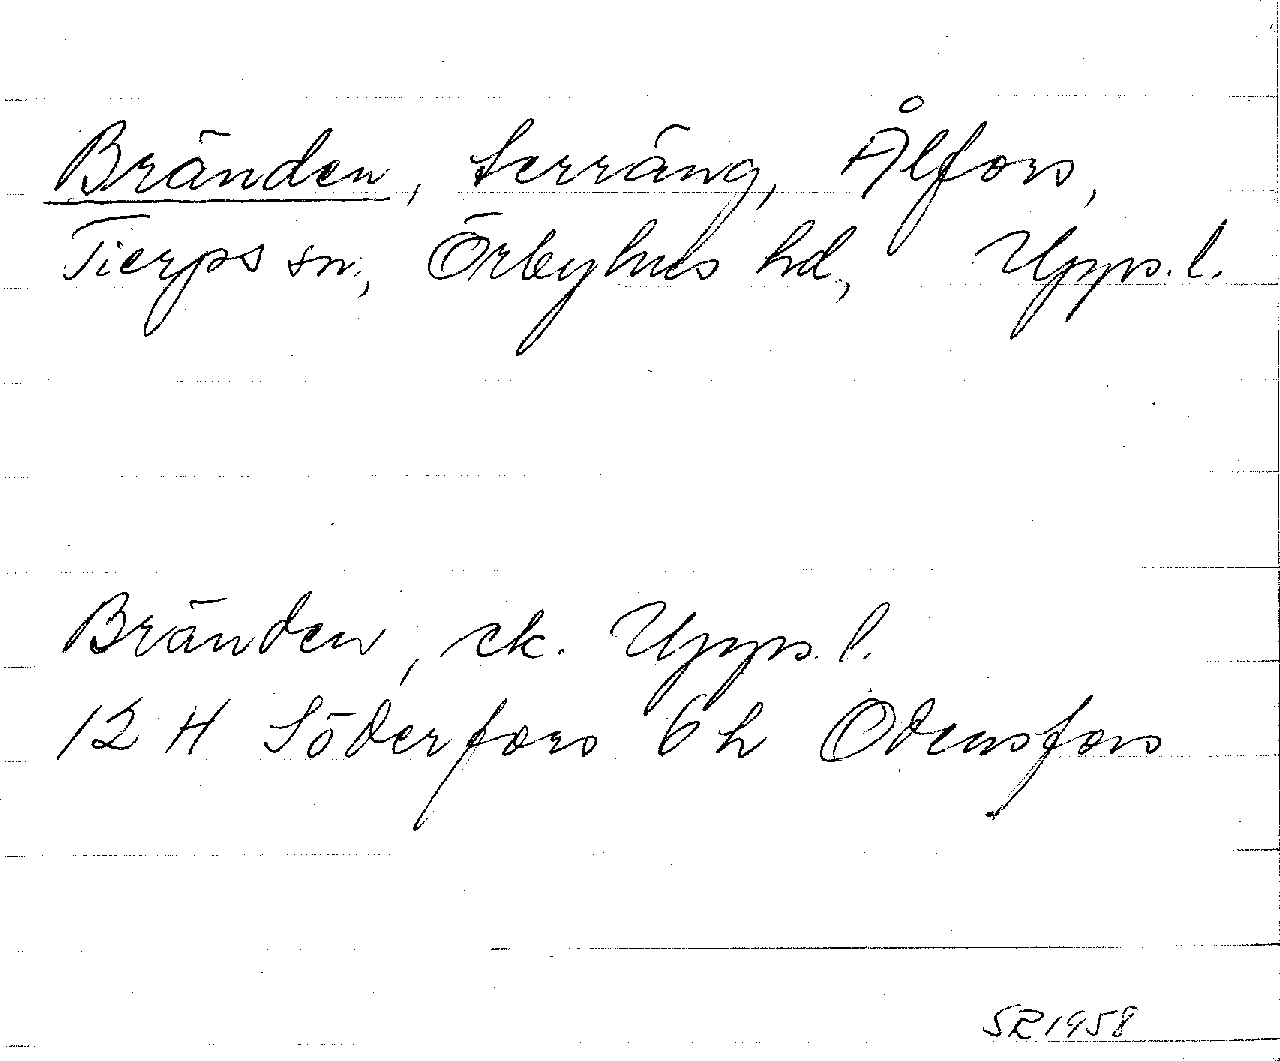 Bränden, terräng, Ålfors,
Tierps sn, Örbyhus hd, Upps. l.
Bränden, ek. Upps. l.
12 H Söderfors 6 h Odensfors
SR 1958